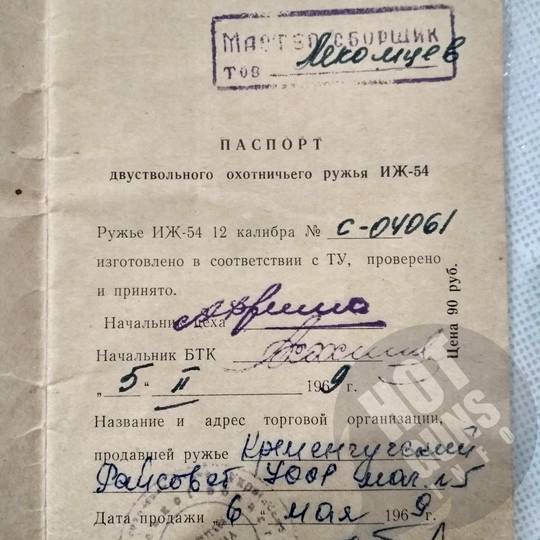 МАСТЕР СБОРЩИК
ТОВ Лекомцев
ПАСПОРТ
двуствольного охотничьего ружья ИЖ-54
Ружье ИЖ-54 12 калибра № С-04061
изготовлено в соответствии с ТУ, проверено
и принято.
Начальник цеха
Начальник БТК
„ 5 “ II 1969 г.
Цена 90 руб.
Название и адрес торговой организации,
продавшей ружье Кременчугский
Райсовет УООР маг. №5
Дата продажи „ 6 “ мая 1969 г.
HOT
GUNS